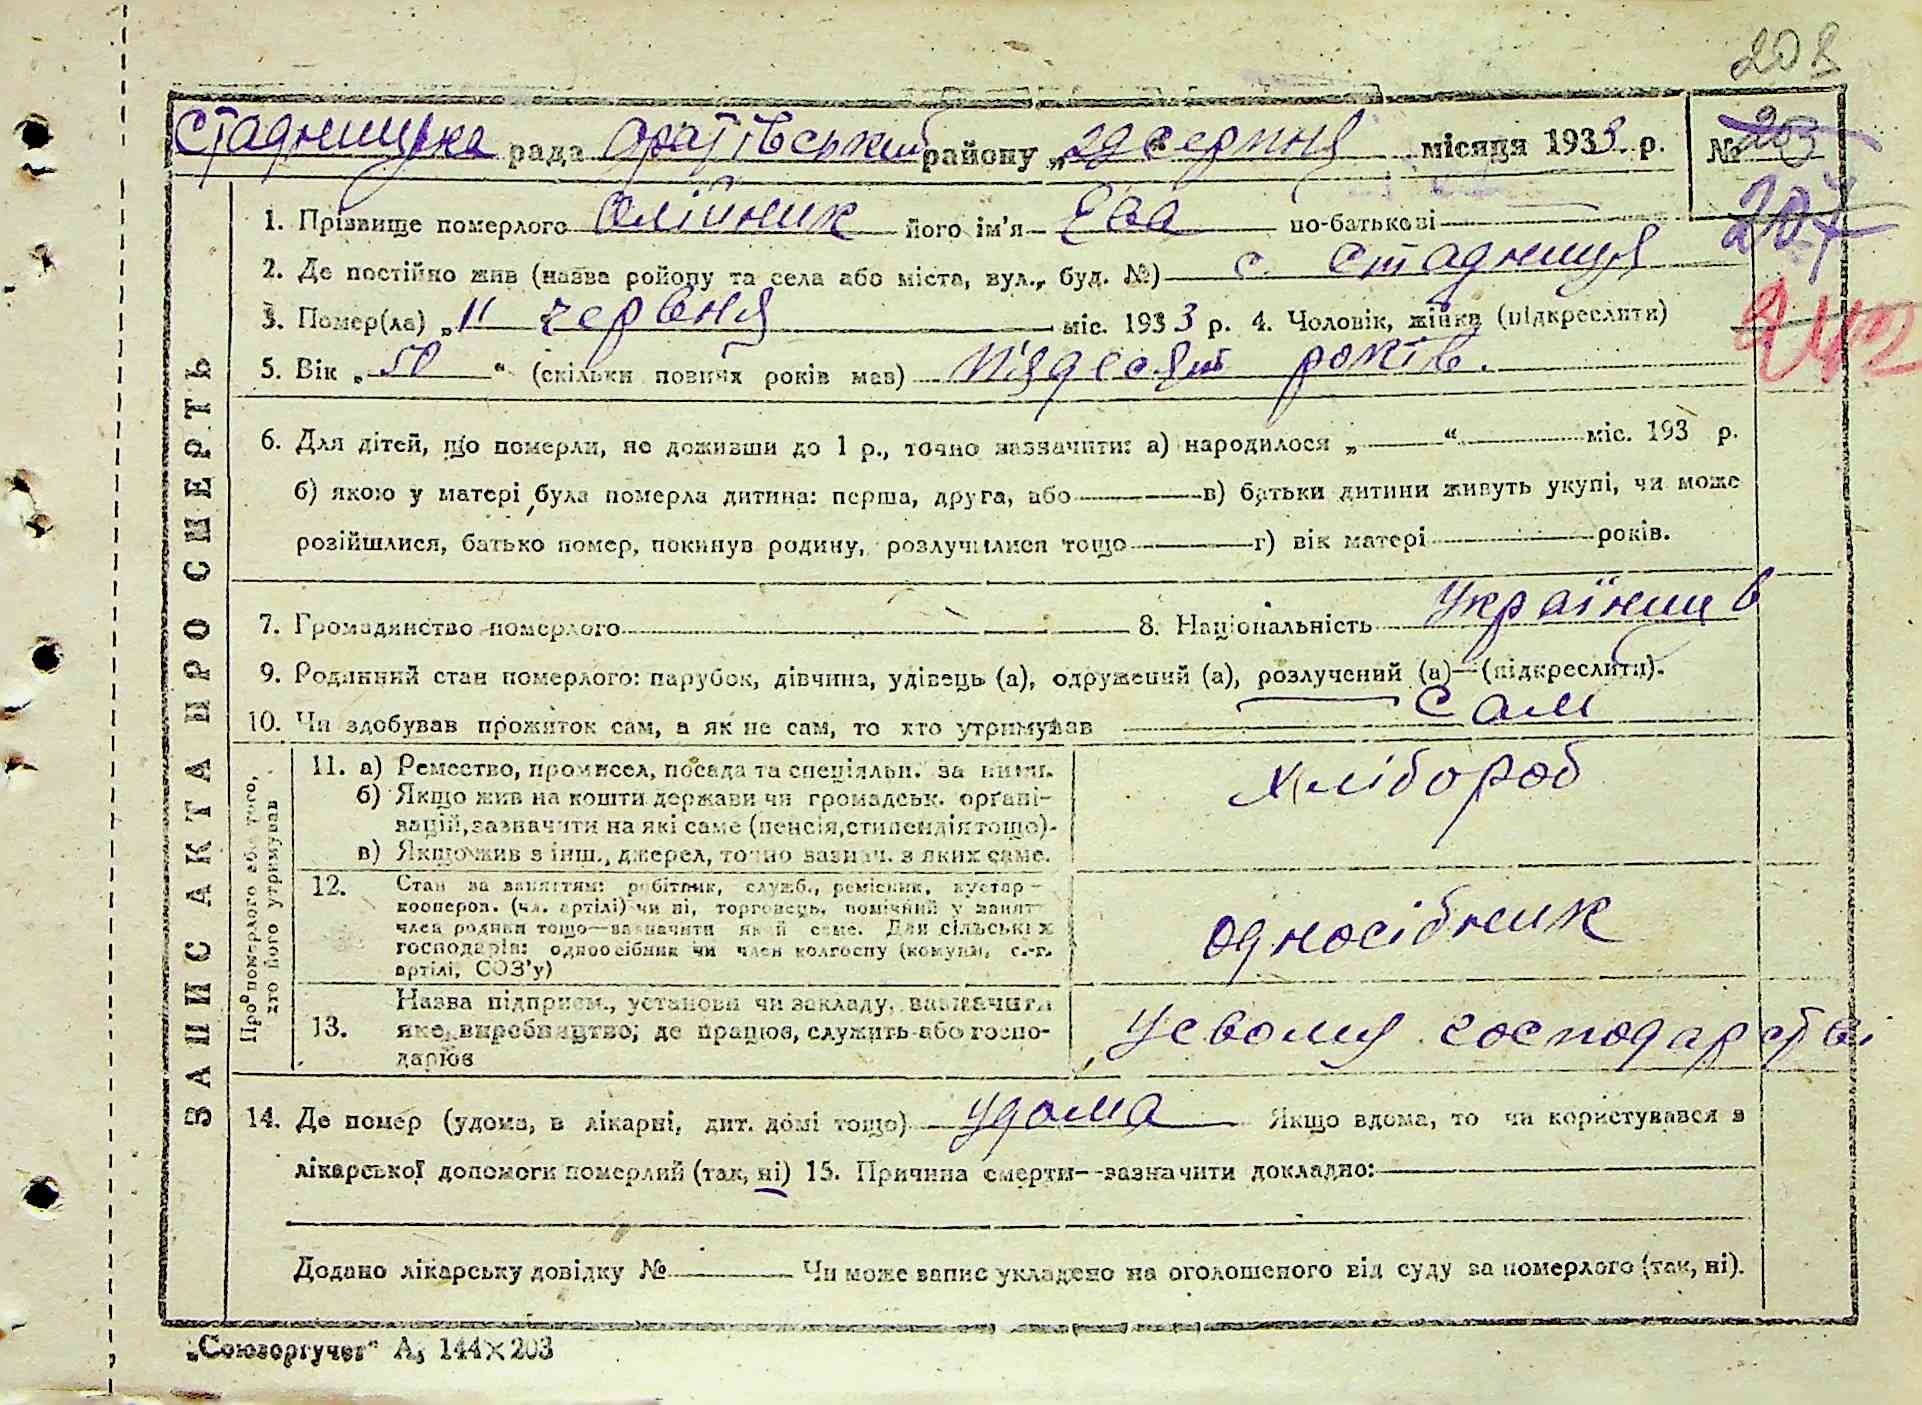 208
Стадницька рада Оратівський району „29 серпня місяця 1933 р. № 203
207
242
ЗАПИС АКТА ПРО СМЕРТЬ
1. Прізвище померлого Олійник його ім'я Ева по-батькові
2. Де постійно жив (назва ройону та села або міста, вул., буд. №) с. Стадниця
3. Помер(ла) „11 червня міс. 1933 р. 4. Чоловік, жінка (підкреслити)
5. Вік „50“ (скільки повних років мав) п'ядесят років.
6. Для дітей, що померли, не доживши до 1 р., точно зазначити: а) народилося „ “ міс. 193 р.
б) якою у матері була померла дитина: перша, друга, або в) батьки дитини живуть укупі, чи може
розійшлися, батько помер, покинув родину, розлучилися тощо г) вік матері років.
7. Громадянство померлого 8. Національність українців
9. Родинний стан померлого: парубок, дівчина, удівець (а), одружений (а), розлучений (а)—(підкреслити).
10. Чи здобував прожиток сам, а як не сам, то хто утримував сам
Про померлого або того, хто його утримував
11. а) Ремество, промисел, посада та спеціяльн. за ними. хлібороб
б) Якщо жив на кошти держави чи громадськ. органі-
зацій, зазначити на які саме (пенсія, стипендія тощо).
в) Якщо жив з інш., джерел, точно зазнач. з яких саме.
12. Стан за заняттям: робітник, служб., ремісник, кустар-
кооперов. (чл. артілі) чи ні, торговець, помічний у занят.
член родини тощо—зазначити який саме. Для сільських
господарів: одноосібник чи член колгоспу (комуни, с.-г.
артілі, СОЗ'у) односібник
13. Назва підприєм., установи чи закладу, зазначити
яке виробництво; де працює, служить або госпо-
дарює у свому господарстві
14. Де помер (удома, в лікарні, дит. домі тощо) удома Якщо вдома, то чи користувався з
лікарської допомоги померлий (так, ні) 15. Причина смерти—зазначити докладно:
Додано лікарську довідку № Чи може запис укладено на оголошеного від суду за померлого (так, ні).
„Союзоргучет“ А, 144×203